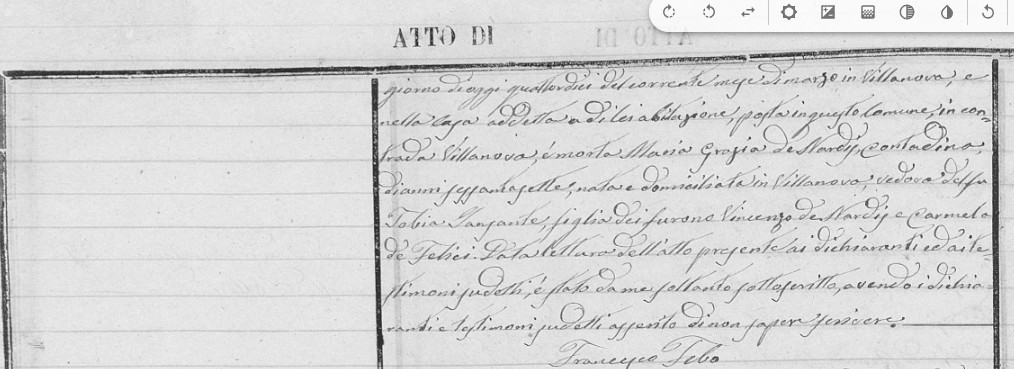 ATTO DI
giorno di oggi quattordici del corrente mese di marzo in Villanova, e
nella casa addetta a di lei abitazione, posta in questo Comune, in con=
trada Villanova, é morta Maria Grazia de Nardis, contadina,
di anni sessantasette, nata e domiciliata in Villanova, vedova del fu
Tobia Zanzante, figlia dei furono Vincenzo de Nardis e Carmela
de Felici. Data lettura dell'atto presente ai dichiaranti ed ai te=
stimoni sudetti, é stato da me soltanto sottoscritto, avendo i dichia=
ranti e testimoni sudetti asserito di non saper scrivere.
Francesco Tebo